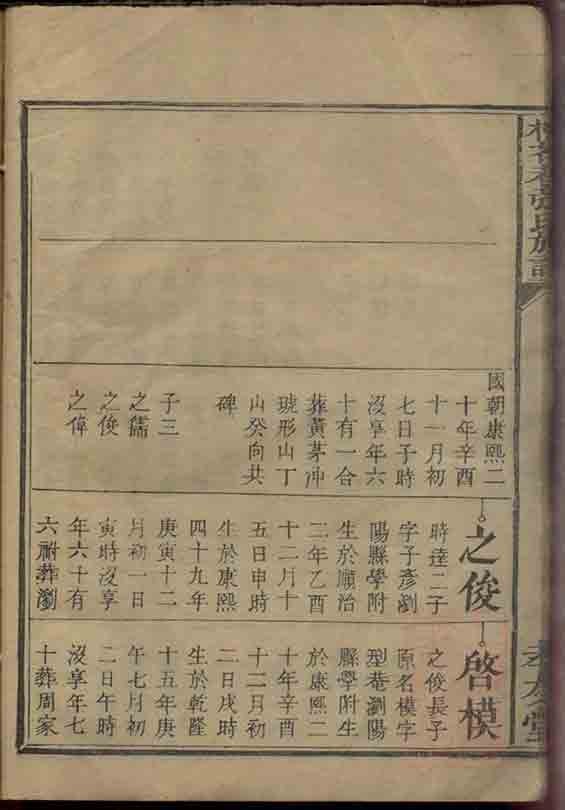 張氏族譜
友堂
國朝康熙二
十年辛酉
十一月初
七日子時
沒享年六
十有一合
葬黃茅冲
琥形山丁
山癸向共
碑
子三
之儒
之俊
之偉
之俊
時逹二子
字子彥瀏
陽縣學附
生於順治
二年乙酉
十二月十
五日申時
生於康熙
四十九年
庚寅十二
月初一日
寅時沒享
年六十有
六祔葬瀏
啓模
之俊長子
原名模字
型菴瀏陽
縣學附生
於康熙二
十年辛酉
十二月初
二日戌時
生於乾隆
十五年庚
午七月初
二日午時
沒享年七
十葬周家